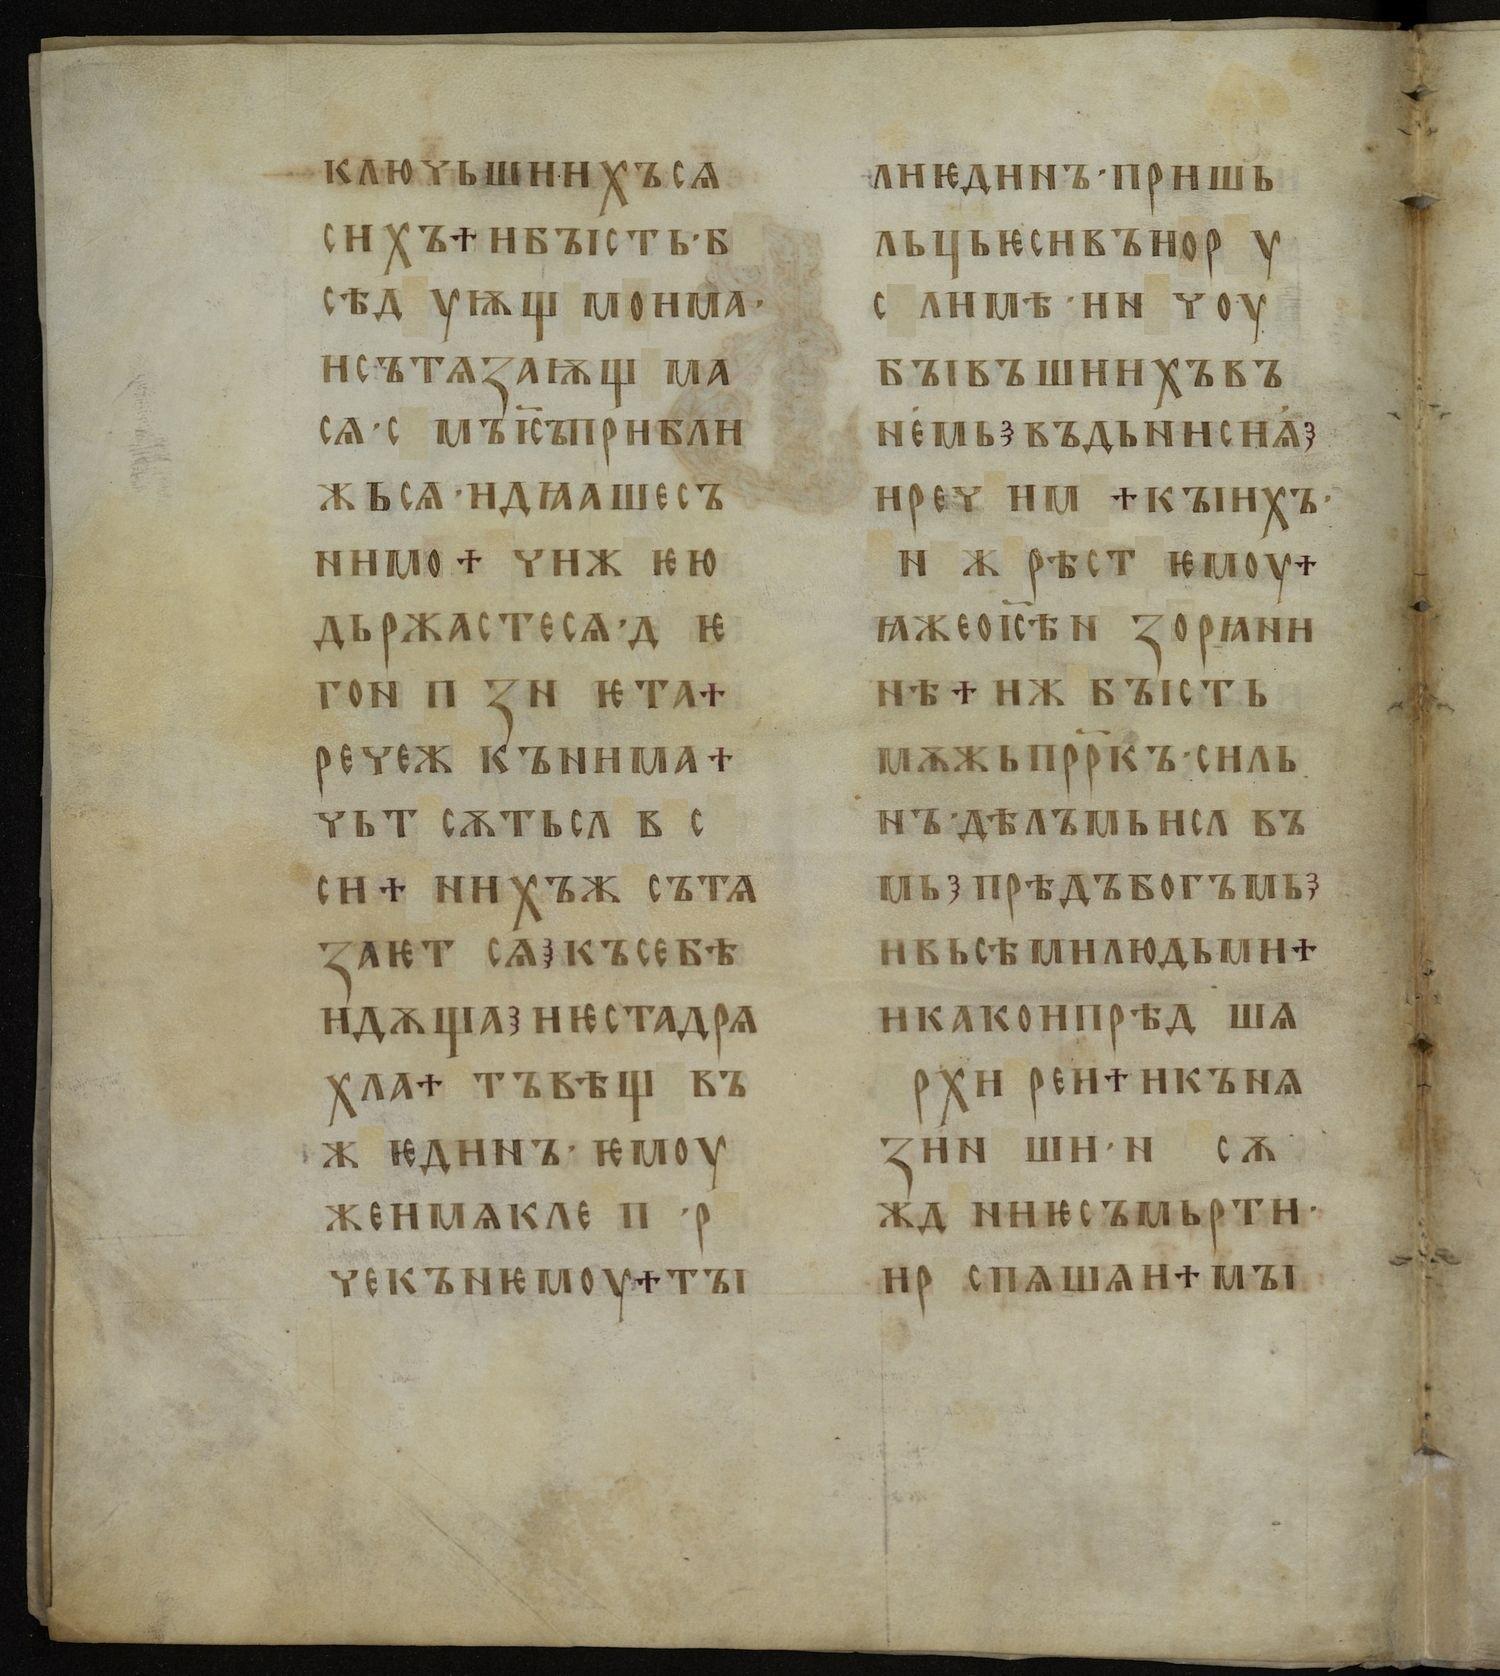 КЛЮЧЬШИИХЪСѦ
СИХЪ+ИБЪІСТЬ·Б
СѢД УѬЩ МОИМА·
ИСЪТѦЗАѬЩ МА
СѦ·С МЪІС҃ЪПРИБЛИ
ЖЬСѦ·ИДꙖАШЕСЪ
НИМО+ ЧИЖ ѤЮ
ДЬРЖАСТЕСѦ·Д Ѥ
ГОН П ЗН ѤТА+
РЕЧЕЖ КЪНИМА+
ЧЬТ СѪТЬСЛ В С
СИ+ НИХЪЖ СЪТѦ
ЗАѤТ СѦ КЪСЕБѢ
ИДѪЩА ИѤСТАДРѦ
ХЛА+ ТЪВѢЩ ВЪ
Ж ѤДИНЪ· ѤМОУ
ЖЕИМѦКЛЕ П ·Р
ЧЕКЪНѤМОУ+ТЪІ
ЛИѤДИНЪ·ПРИШЬ
ЛЬЦЬѤСИВЪИОР У
С ЛИМѢ·НИ ЧОУ
БЪІВЪШИИХЪВЪ
НЕМЬ ВЪДЬНИСИѦ
ИРЕЧ ИМ +КЪІИХЪ·
Н Ж РѢСТ ѤМОУ+
ꙖЖЕОІС҃ѢН ЗОРꙖНИ
НѢ+ ИЖ БЪІСТЬ
МѪЖЬПРР҃КЪ·СИЛЬ
НЪ·ДѢЛЪМЬИСЛ ВЪ
МЬ ПРѢДЪБОГЪМЬ
ИВЬСѢМИЛЮДЬМИ+
ИКАКОИПРѢД ШѦ
РХИ РЕИ+ИКЪНѦ
ЗИН ШИ·Н СѪ
ЖД НИѤСЪМЬРТИ·
ИР СПѦШѦИ+МЪІ